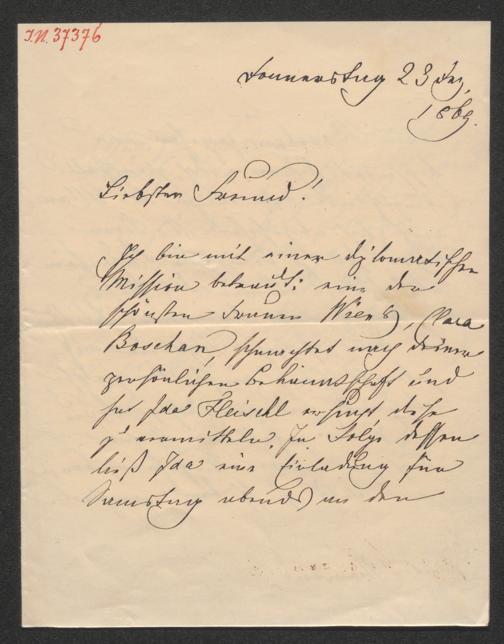 I.N. 37376
Donnerstag 23 Dez.
1869.
Liebster Freund!
Ich bin mit einer diplomatischen
Mission betraut: eine der
schönsten Frauen Wiens, Clara
Boschan, schmachtet nach Deiner
persönlichen Bekanntschaft und
hat Ida Fleischl ersucht diese
zu vermitteln. In Folge dessen
ließ Ida eine Einladung für
Samstag abends an den